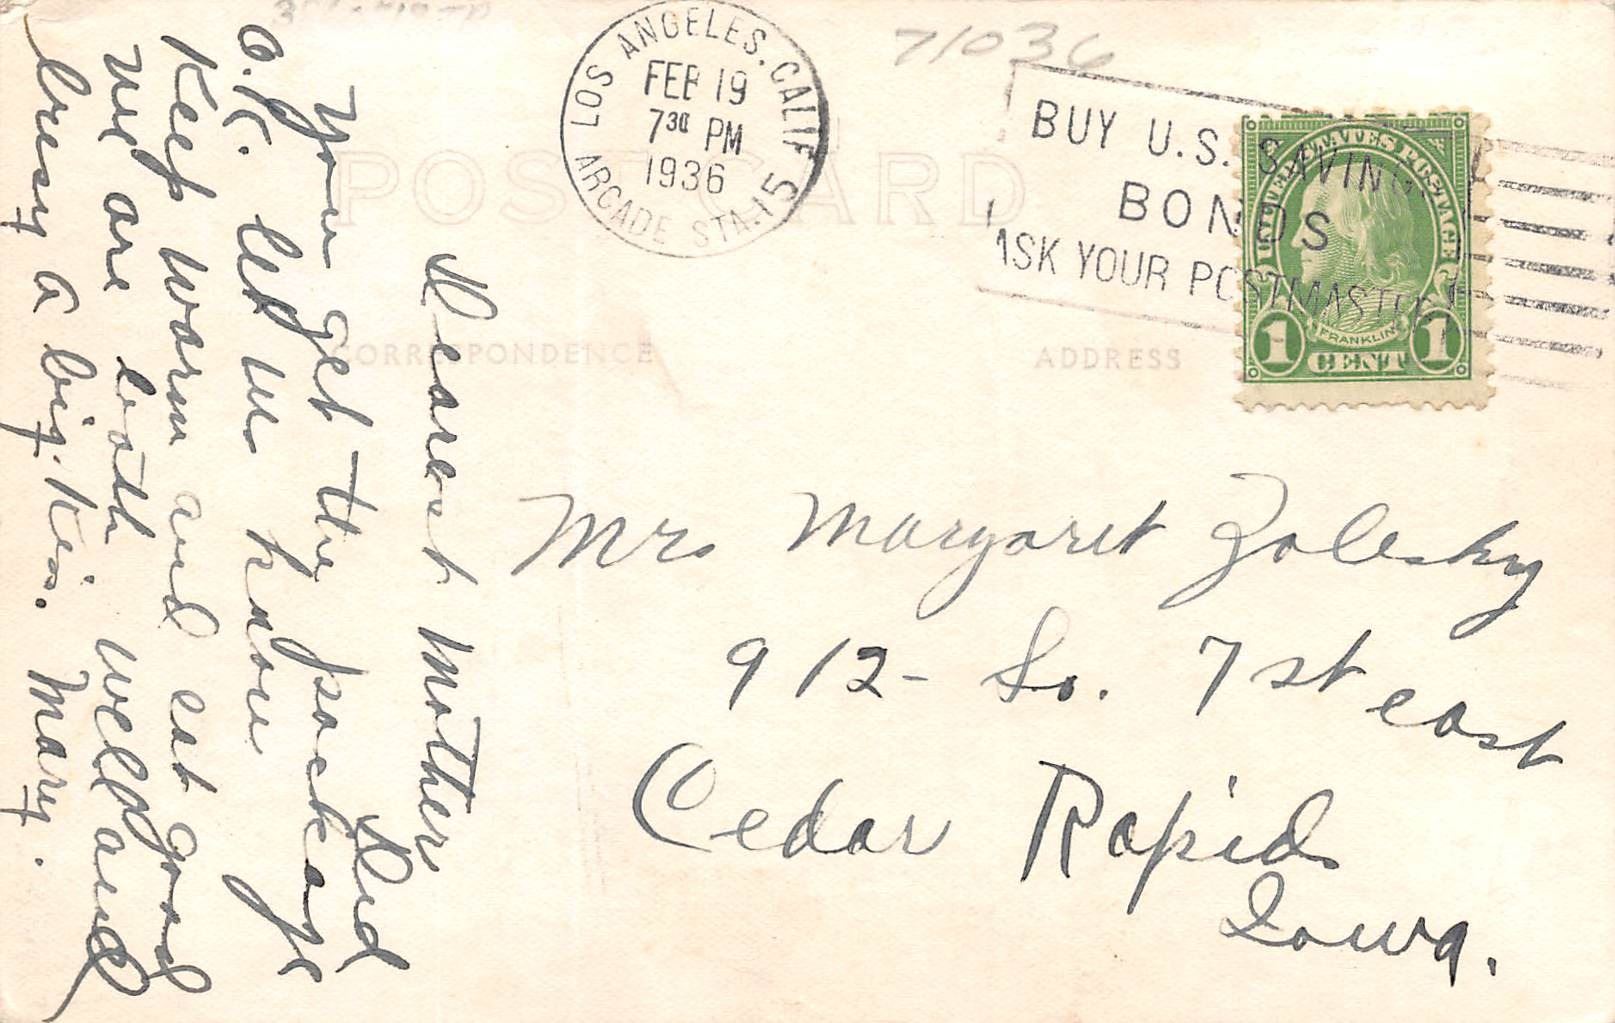 71036
LOS ANGELES, CALIF
FEB 19
7 30 PM
1936
ARCADE STA. 15
BUY U.S. SAVINGS
BONDS
ASK YOUR POSTMASTER
UNITED STATES POSTAGE
FRANKLIN
1 CENT 1
POST CARD
CORRESPONDENCE
ADDRESS
Dearest Mother:
Did
you get the package
O.K. let us know
Keep warm and eat good
We are both well and
busy a big kiss. Mary.
Mrs Margaret Zalesky
912- So. 7 st east
Cedar Rapids
Iowa.